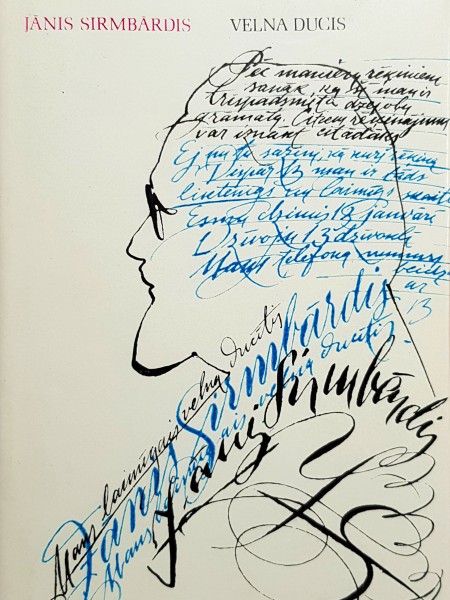 JĀNIS SIRMBĀRDIS VELNA DUCIS
Pēc maniem rēķiniem
sanāk, ka šī man ir
trīspadsmitā dzejoļu
grāmata. Citiem rēķinājumā
var iznākt citādāks
Ej nu tu sazini, ka kurš rēķina
Vispār 13 man ir tāds
lietenīgs un laimīgs skaitlis
Esmu dzimis 13 janvārī
Dzīvoju 13 dzīvoklī
Mans telefona numurs
beidzas
ar
13
Mans laimīgais velna ducītis
Jānis Sirmbārdis
Mans laimīgais velna ducītis
Jānis Sirmbārdis